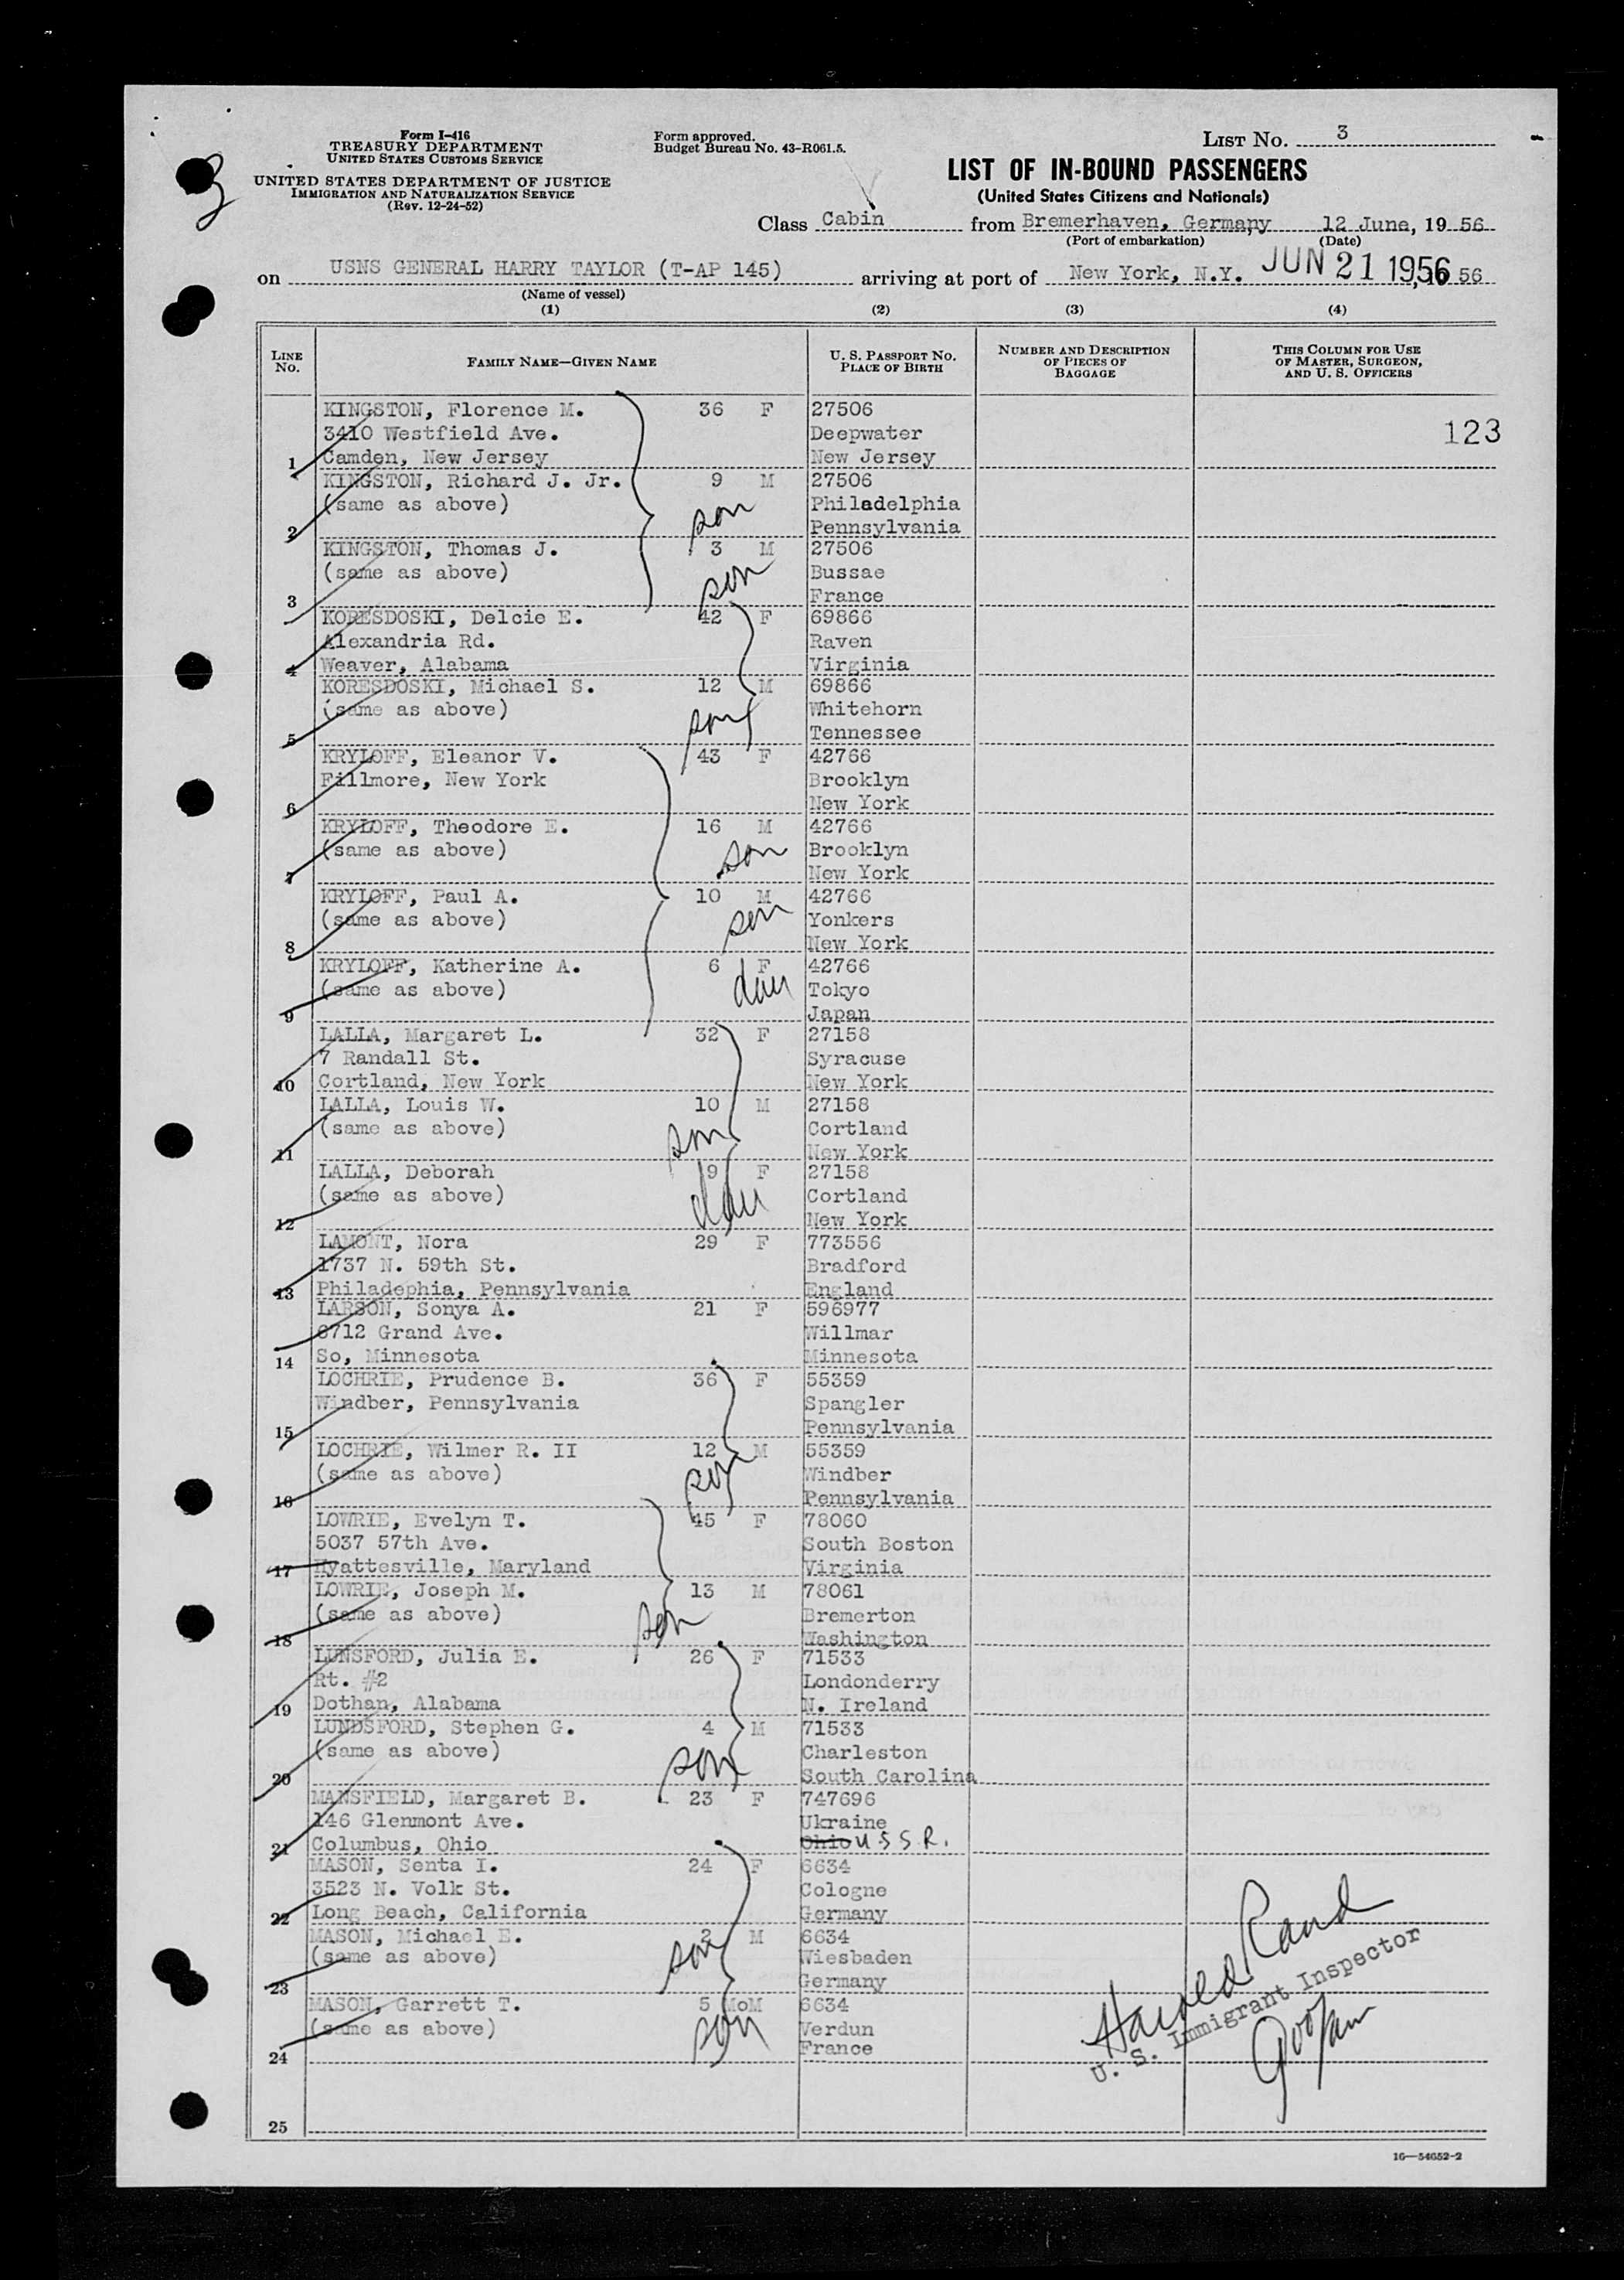 3
Form I-416
TREASURY DEPARTMENT
UNITED STATES CUSTOMS SERVICE
UNITED STATES DEPARTMENT OF JUSTICE
IMMIGRATION AND NATURALIZATION SERVICE
(Rev. 12-24-52)
Form approved.
Budget Bureau No. 43-R061.5.
LIST No. 3
LIST OF IN-BOUND PASSENGERS
(United States Citizens and Nationals)
Class Cabin from Bremerhaven, Germany 12 June, 19 56
(Port of embarkation) (Date)
on USNS GENERAL HARRY TAYLOR (T-AP 145) arriving at port of New York, N.Y. JUN 21 1956 56
(Name of vessel)
(1) (2) (3) (4)
LINE No. FAMILY NAME—GIVEN NAME U. S. PASSPORT No. PLACE OF BIRTH NUMBER AND DESCRIPTION OF PIECES OF BAGGAGE THIS COLUMN FOR USE OF MASTER, SURGEON, AND U. S. OFFICERS
KINGSTON, Florence M. 36 F 27506
3410 Westfield Ave. Deepwater 123
1 Camden, New Jersey New Jersey
KINGSTON, Richard J. Jr. 9 M 27506
(same as above) son Philadelphia
2 Pennsylvania
KINGSTON, Thomas J. 3 M 27506
(same as above) son Bussae
3 France
KORESDOSKI, Delcie E. 42 F 69866
Alexandria Rd. Raven
4 Weaver, Alabama Virginia
KORESDOSKI, Michael S. 12 M 69866
(same as above) son Whitehorn
5 Tennessee
KRYLOFF, Eleanor V. 43 F 42766
Fillmore, New York Brooklyn
6 New York
KRYLOFF, Theodore E. 16 M 42766
(same as above) son Brooklyn
7 New York
KRYLOFF, Paul A. 10 M 42766
(same as above) son Yonkers
8 New York
KRYLOFF, Katherine A. 6 F 42766
(same as above) dau Tokyo
9 Japan
LALLA, Margaret L. 32 F 27158
7 Randall St. Syracuse
10 Cortland, New York New York
LALLA, Louis W. 10 M 27158
(same as above) son Cortland
11 New York
LALLA, Deborah 9 F 27158
(same as above) dau Cortland
12 New York
LAMONT, Nora 29 F 773556
1737 N. 59th St. Bradford
13 Philadephia, Pennsylvania England
LARSON, Sonya A. 21 F 596977
6712 Grand Ave. Willmar
14 So, Minnesota Minnesota
LOCHRIE, Prudence B. 36 F 55359
Windber, Pennsylvania Spangler
15 Pennsylvania
LOCHRIE, Wilmer R. II 12 M 55359
(same as above) son Windber
16 Pennsylvania
LOWRIE, Evelyn T. 45 F 78060
5037 57th Ave. South Boston
17 Hyattesville, Maryland Virginia
LOWRIE, Joseph M. 13 M 78061
(same as above) son Bremerton
18 Washington
LUNSFORD, Julia E. 26 F 71533
Rt. #2 Londonderry
19 Dothan, Alabama N. Ireland
LUNDSFORD, Stephen G. 4 M 71533
(same as above) son Charleston
20 South Carolina
MANSFIELD, Margaret B. 23 F 747696
146 Glenmont Ave. Ukraine
21 Columbus, Ohio Ohio U.S.S.R.
MASON, Senta I. 24 F 6634
3523 N. Volk St. Cologne
22 Long Beach, California Germany
MASON, Michael E. 2 M 6634
(same as above) son Wiesbaden
23 Germany
MASON, Garrett T. 5 MoM 6634
(same as above) son Verdun
24 France
25
Harold Rand
U. S. Immigrant Inspector
16—54652-2